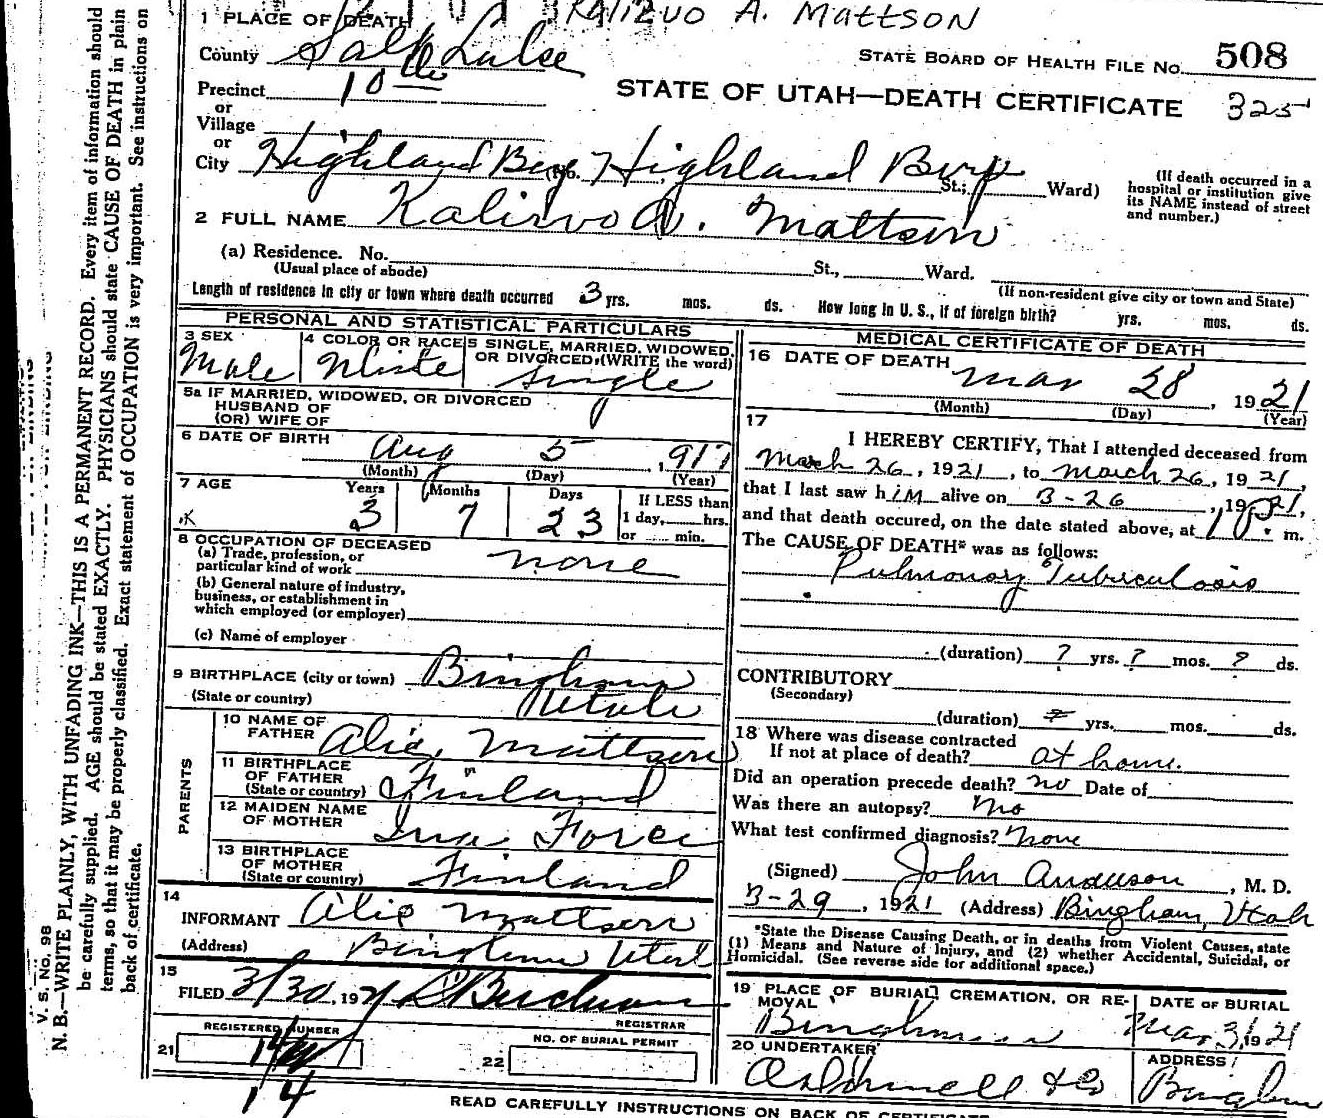 Kalizvo A. Mattson
1 PLACE OF DEATH
STATE BOARD OF HEALTH FILE No. 508
County Salt Lake
STATE OF UTAH—DEATH CERTIFICATE 325
Precinct 10th
or
Village
or
City Highland Boy (No. Highland Boy St.; Ward)
(If death occurred in a hospital or institution give its NAME instead of street and number.)
2 FULL NAME Kalirvo A. Mattson
(a) Residence. No. St., Ward.
(Usual place of abode)
(If non-resident give city or town and State)
Length of residence in city or town where death occurred 3 yrs. mos. ds. How long in U. S., if of foreign birth? yrs. mos. ds.
PERSONAL AND STATISTICAL PARTICULARS
3 SEX Male
4 COLOR OR RACE White
5 SINGLE, MARRIED, WIDOWED, OR DIVORCED, (WRITE the word) Single
5a IF MARRIED, WIDOWED, OR DIVORCED
HUSBAND OF
(OR) WIFE OF
6 DATE OF BIRTH Aug 5, 1917
(Month) (Day) (Year)
7 AGE Years 3 Months 7 Days 23
If LESS than
1 day, hrs.
or min.
8 OCCUPATION OF DECEASED
(a) Trade, profession, or
particular kind of work none
(b) General nature of industry,
business, or establishment in
which employed (or employer)
(c) Name of employer
9 BIRTHPLACE (city or town) Bingham
(State or country) Utah
PARENTS
10 NAME OF FATHER Alie Mattson
11 BIRTHPLACE OF FATHER (State or country) Finland
12 MAIDEN NAME OF MOTHER Ina
13 BIRTHPLACE OF MOTHER (State or country) Finland
14
INFORMANT Alie Mattson
(Address) Bingham Utah
15
FILED 3/30, 1921
REGISTRAR
REGISTERED NUMBER
21
14
NO. OF BURIAL PERMIT
22
MEDICAL CERTIFICATE OF DEATH
16 DATE OF DEATH Mar 28, 1921
(Month) (Day) (Year)
17
I HEREBY CERTIFY, That I attended deceased from
March 26, 1921, to March 26, 1921,
that I last saw him alive on 3-26, 1921,
and that death occured, on the date stated above, at m.
The CAUSE OF DEATH* was as follows:
Pulmonary Tuberculosis
(duration) ? yrs. ? mos. ? ds.
CONTRIBUTORY
(Secondary)
(duration) yrs. mos. ds.
18 Where was disease contracted
If not at place of death? at home.
Did an operation precede death? no Date of
Was there an autopsy? No
What test confirmed diagnosis? None
(Signed) John Anderson, M. D.
3-29, 1921 (Address) Bingham, Utah
*State the Disease Causing Death, or in deaths from Violent Causes, state
(1) Means and Nature of Injury, and (2) whether Accidental, Suicidal, or
Homicidal. (See reverse side for additional space.)
19 PLACE OF BURIAL, CREMATION, OR REMOVAL Bingham
DATE OF BURIAL Mar 31, 1921
20 UNDERTAKER
ADDRESS Bingham
READ CAREFULLY INSTRUCTIONS ON BACK OF CERTIFICATE
V. S. No. 98
N. B.—WRITE PLAINLY, WITH UNFADING INK—THIS IS A PERMANENT RECORD. Every item of information should
be carefully supplied. AGE should be stated EXACTLY. PHYSICIANS should state CAUSE OF DEATH in plain
terms, so that it may be properly classified. Exact statement of OCCUPATION is very important. See instructions on
back of certificate.